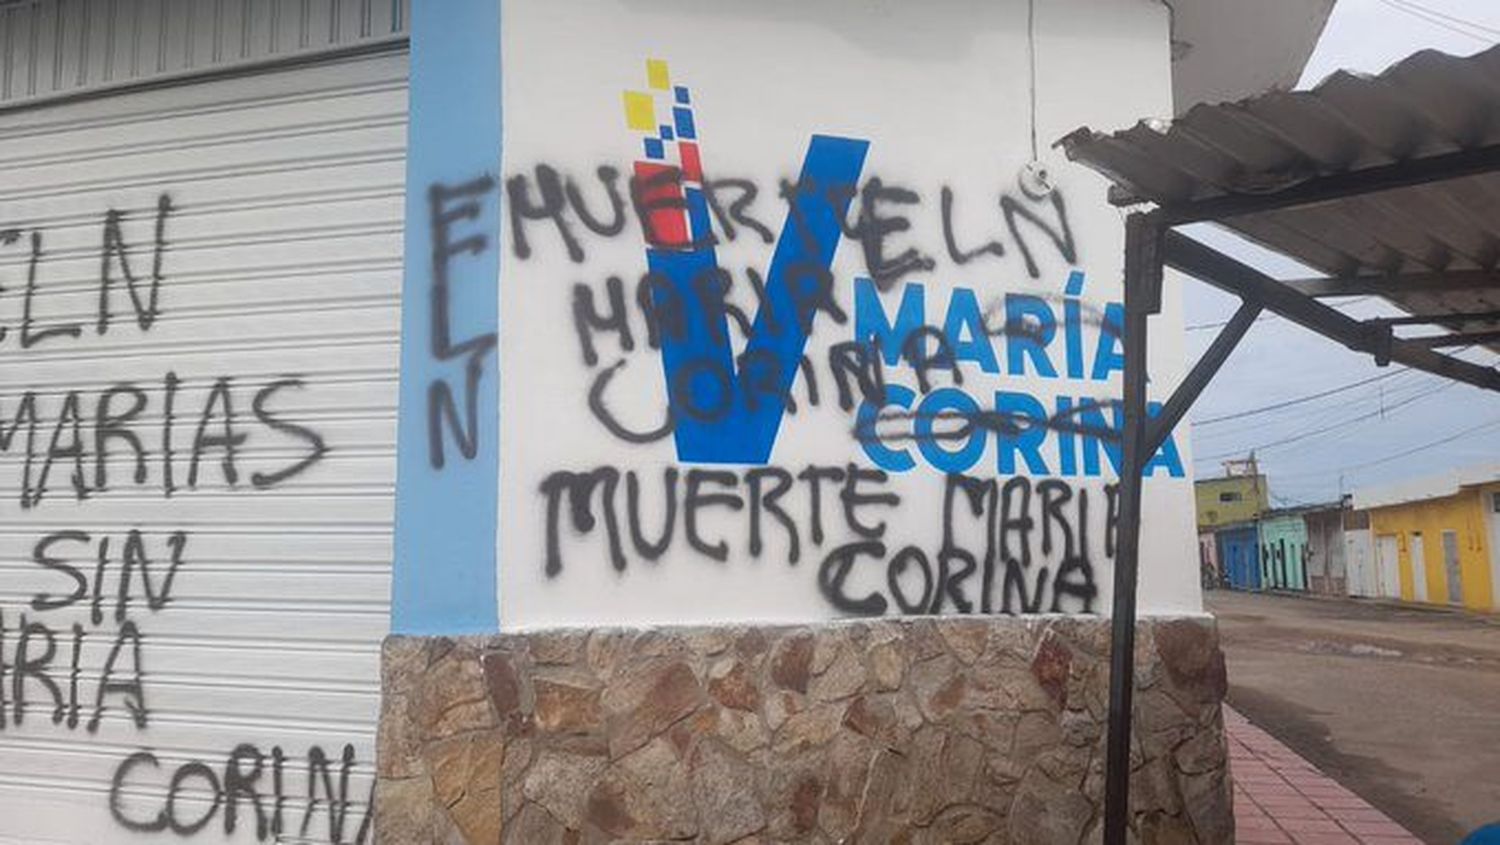 ELN
MARIAS
SIN
MARIA
CORINA
ELN
MUERTE ELN
MARIA
CORINA
MARÍA
CORINA
MUERTE MARIA
CORINA
V